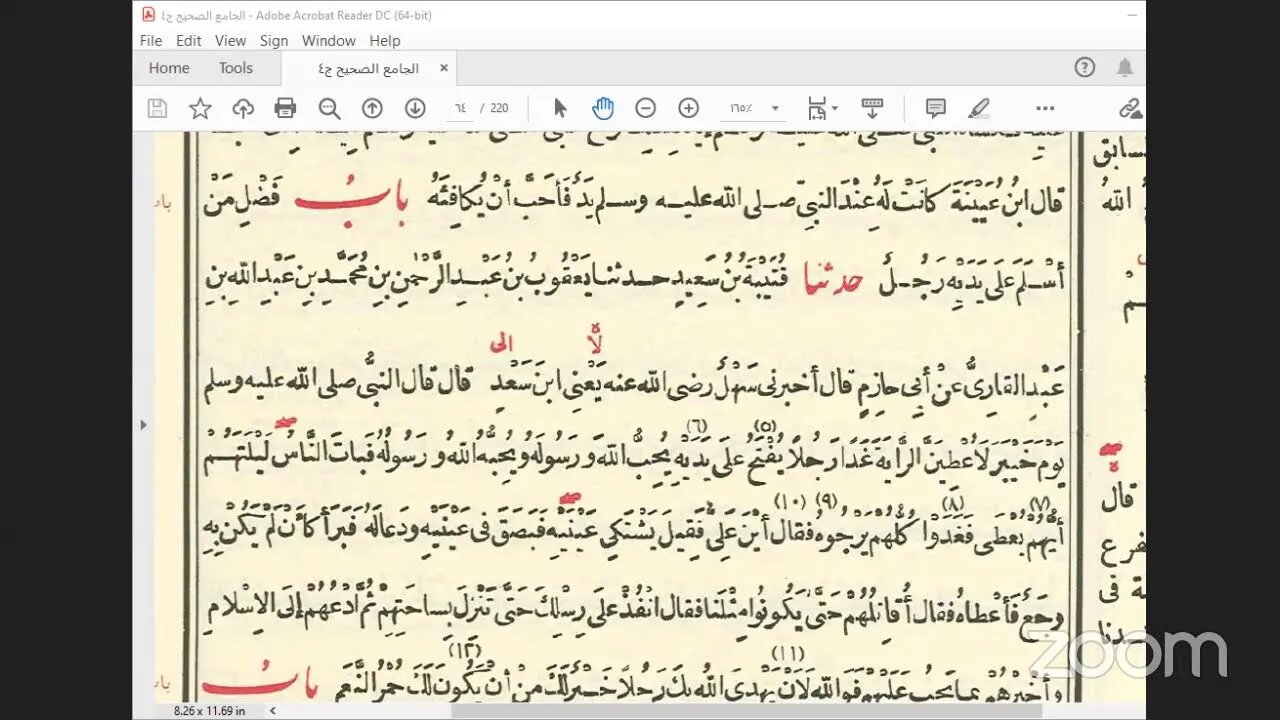 الجامع الصحيح ج٤ - Adobe Acrobat Reader DC (64-bit)
File Edit View Sign Window Help
Home Tools الجامع الصحيح ج٤ ×
٦٤ / 220 ١٦٥٪
قال ابنُ عُيَيْنَةَ كانَتْ لَهُ عِنْدَ النبيّ صلى الله عليه وسلم يَدٌ فَأَحَبَّ أنْ يُكافِئَهُ بابُ فَضْلِ مَنْ
أسْلَمَ عَلَى يَدَيْهِ رَجُلٌ حدثنا قُتَيْبَةُ بنُ سَعِيدٍ حدثنا يَعْقُوبُ بنُ عَبْدِ الرَّحْمٰنِ بنِ مُحَمَّدِ بنِ عَبْدِ اللهِ بنِ
لا الى
عَبْدٍ القارِىُّ عَنْ أبِى حازِمٍ قال أخبرنى سَهْلٌ رضى الله عنه يَعْنِى ابنَ سَعْدٍ قال قال النبىُّ صلى الله عليه وسلم
(٥) (٦)
يَوْمَ خَيْبَرَ لَاُعْطِيَنَّ الرَّايَةَ غَدًا رَجُلًا يُفْتَحُ عَلَى يَدَيْهِ يُحِبُّ اللهَ ورَسُولَهُ ويُحِبُّهُ اللهُ ورَسُولُهُ فَباتَ النَّاسُ لَيْلَتَهُمْ
(٧) (٨) (٩) (١٠)
أيُّهُمْ يُعْطَى فَغَدَوْا كُلُّهُمْ يَرْجُوهُ فقال أيْنَ عَلِىٌّ فَقِيلَ يَشْتَكِى عَيْنَيْهِ فَبَصَقَ فى عَيْنَيْهِ ودَعا لَهُ فَبَرَأَ كَأَنْ لَمْ يَكُنْ بِهِ
وجَعٌ فَأَعْطاهُ فقال أُقاتِلُهُمْ حَتَّى يَكُونُوا مِثْلَنا فقال انْفُذْ عَلَى رِسْلِكَ حَتَّى تَنْزِلَ بِساحَتِهِمْ ثُمَّ ادْعُهُمْ إلَى الإسْلامِ
(١١) (١٢)
وأخْبِرْهُمْ بِما يَجِبُ عَلَيْهِمْ فَوَاللهِ لَأَنْ يَهْدِىَ اللهُ بِكَ رَجُلًا خَيْرٌ لَكَ مِنْ أنْ يَكُونَ لَكَ حُمْرُ النَّعَمِ بابُ
الله
قال
zoom
8.26 x 11.69 in